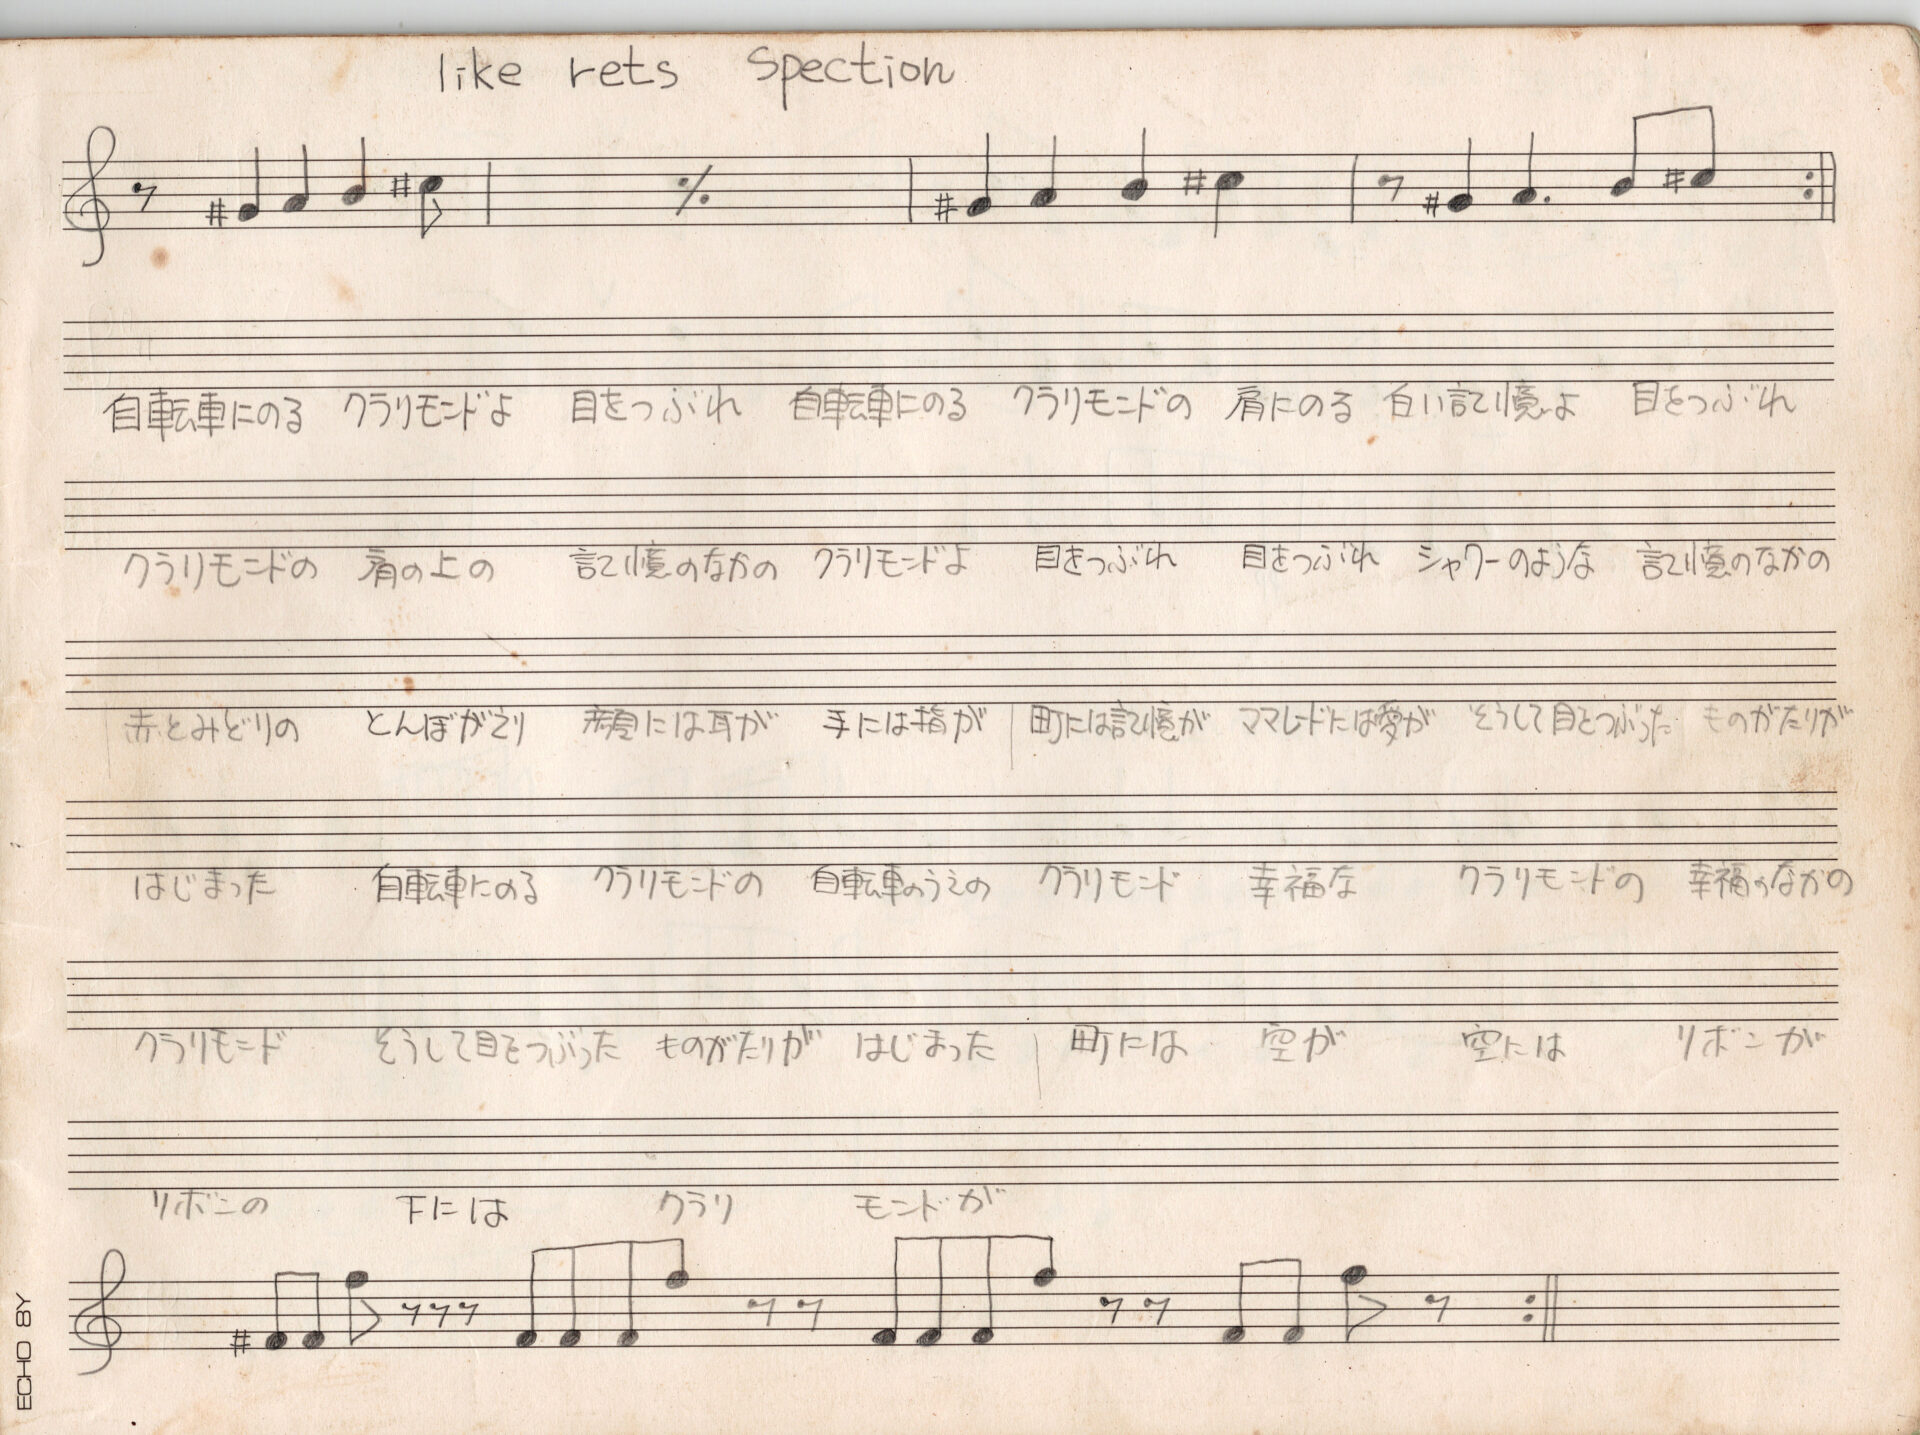 like rets Spection
自転車にのる クラリモンドよ 目をつぶれ 自転車にのる クラリモンドの 肩にのる 白い記憶よ 目をつぶれ
クラリモンドの 肩の上の 記憶のなかの クラリモンドよ 目をつぶれ 目をつぶれ シャワーのような 記憶のなかの
赤とみどりの とんぼがえり 顔には耳が 手には指が 町には記憶が ママレードには愛が そうして目をつぶった ものがたりが
はじまった 自転車にのる クラリモンドの 自転車のうえの クラリモンド 幸福な クラリモンドの 幸福のなかの
クラリモンド そうして目をつぶった ものがたりが はじまった 町には 空が 空には リボンが
リボンの 下には クラリ モンドが
ECHO BY